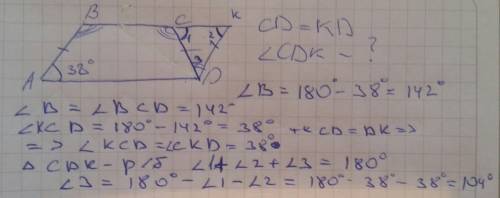 B C K
1 2
3
A 38° D
CD = KD
∠CDK - ?
∠B = 180° - 38° = 142°
∠B = ∠BCD = 142°
∠KCD = 180° - 142° = 38° т.к CD = DK =>
=> ∠KCD = ∠CKD = 38°
△ CDK - р/б ∠1+∠2+∠3 = 180°
∠3 = 180° - ∠1 - ∠2 = 180° - 38° - 38° = 104°